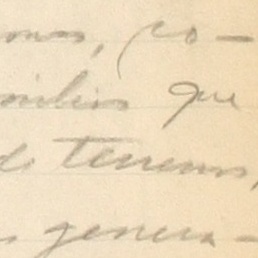 mas, co-
milias que
de terrenos,
s genera-